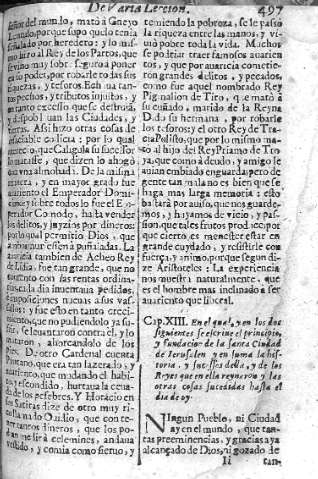 De Varia Leccion.
497
ñor del mundo, mató à Gneyo
Lentulo, porque supo que lo tenia
señalado por heredero: y lo mismo
hizo al Rey de los Partos, que
en su poder, por robarle todas sus
riquezas, y tesoros. Echò tan-
tos pechos, y tributos injustos, y
tanto excesso, que se destruia,
y despoblauan las Ciudades, y
tierras. Assi hizo otras cosas de
insaciable codicia: por lo qual
que Caligula su sucessor
lo matasse, que dizen lo ahogò
con vna almohada. De la misma
manera, y en mayor grado fue
auariento el Emperador Domi-
ciano, y sobre todos lo fue el Em-
perador Comodo, hasta vender
los delitos, y juyzios por dineros:
por lo qual permitiò Dios, que
ambos muriessen à puñaladas. La
auaricia tambien de Acheo Rey
de Lidia, fue tan grande, que no
contento con las rentas ordina-
rias, cada dia inuentaua pedidos,
è imposiciones nueuas à sus vas-
sallos: y fue esto en tanto creci-
miento, que no pudiendolo ya su-
frir, se leuantaron contra èl, y lo
mataron, ahorcandolo de los
pies. De otro Cardenal cuenta
Pontano, que era tan lazerado, y
auariento, que mudando el habi-
to, y escondido, hurtaua la ceua-
da de los pesebres. Y Horacio en
las Satiras dize de otro muy ri-
co, llamado Ouidio, que con te-
ner tantos dineros, que los po-
dia medir à celemines, andaua
vestido, y comia como sieruo, y
temiendo la pobreza, se le passò
la riqueza entre las manos, y vi-
uiò pobre toda la vida. Muchos
se podrian traer famosos auarien-
tos, y que por auaricia cometie-
ron grandes delitos, y pecados,
como fue aquel nombrado Rey
Pigmalion de Tiro, que matò à
su cuñado, marido de la Reyna
Dido su hermana, por robarle
los tesoros: y el otro Rey de Tra-
cia Polisto, que por lo mismo ma-
tò al hijo del Rey Priamo de Tro-
ya, que como à deudo, y amigo le
auian embiado en guarda; pero de
gente tan mala no es bien que se
haga mas larga memoria: esto
bastarà por auiso, que nos guarde-
mos, y huyamos de vicio, y pas-
sion, que tales frutos produce; por
que cierto es menester estar en
grande cuydado, y resistirle con
fuerça, y animo, porque segun di-
ze Aristoteles: La experiencia
nos muestra, naturalmente, que
es el hombre mas inclinado à ser
auariento que liberal.
Cap. XIII. En el qual, y en los dos
siguientes se escriue el principio,
y fundacion de la santa Ciudad
de Ierusalen y en suma la his-
toria, y sucesos della, y de los
Reyes que en ella reynaron y las
otras cosas sucedidas hasta el
dia de oy.
NIngun Pueblo, ni Ciudad
ay en el mundo, que tan-
tas preeminencias, y gracias aya
alcançado de Dios, ni gozado de
Ii
tan-